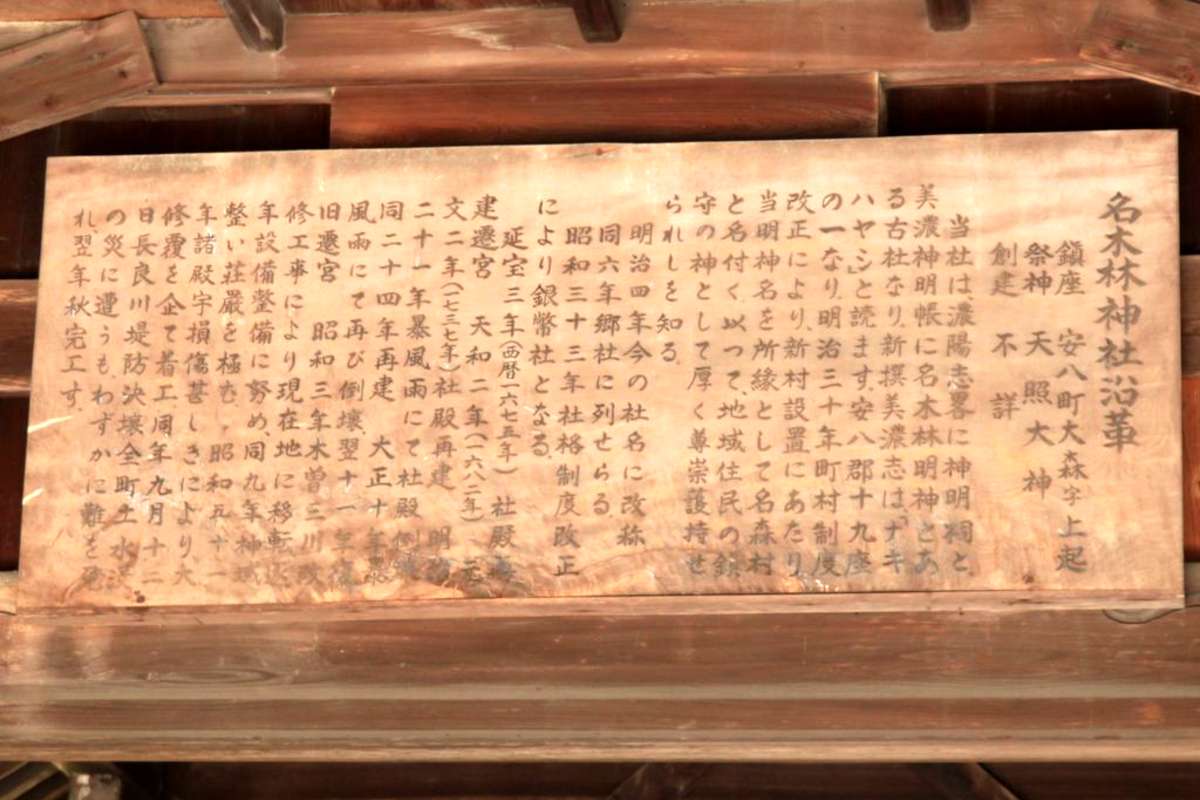 名木林神社沿革
鎮座 安八町大森字上起
祭神 天照大神
創建 不詳
当社は、濃陽志畧に神明祠と、
美濃神明帳に名木林明神とあ
る古社なり、新撰美濃志は「ナキ
ハヤシ」と読ます、安八郡十九座
の一なり、明治三十年町村制度
改正により、新村設置にあたり
当明神名を所縁として名森村
と名付く、以つて、地域住民の鎮
守の神として厚く尊崇護持せ
られしを知る。
明治四年今の社名に改称
同六年郷社に列せらる。
昭和三十三年社格制度改正
により銀幣社となる。
延宝三年(西暦一六七五年) 社殿再
建遷宮 天和二年(一六八二年) 元
文二年(一七三七年)社殿再建 明治
二十一年暴風雨にて社殿倒壊
同二十四年再建 大正十年暴
風雨にて再び倒壊翌十一年
旧遷宮 昭和三年木曽三川改
修工事により現在地に移転
年設備整備に努め、同九年神域
整い荘厳を極む。昭和五十一
年諸殿宇損傷甚しきにより大
修覆を企て着工周年九月十二
日長良川堤防決壊全町土水没
の災に遭うも、わずかに難を免
れ、翌年秋完工す。